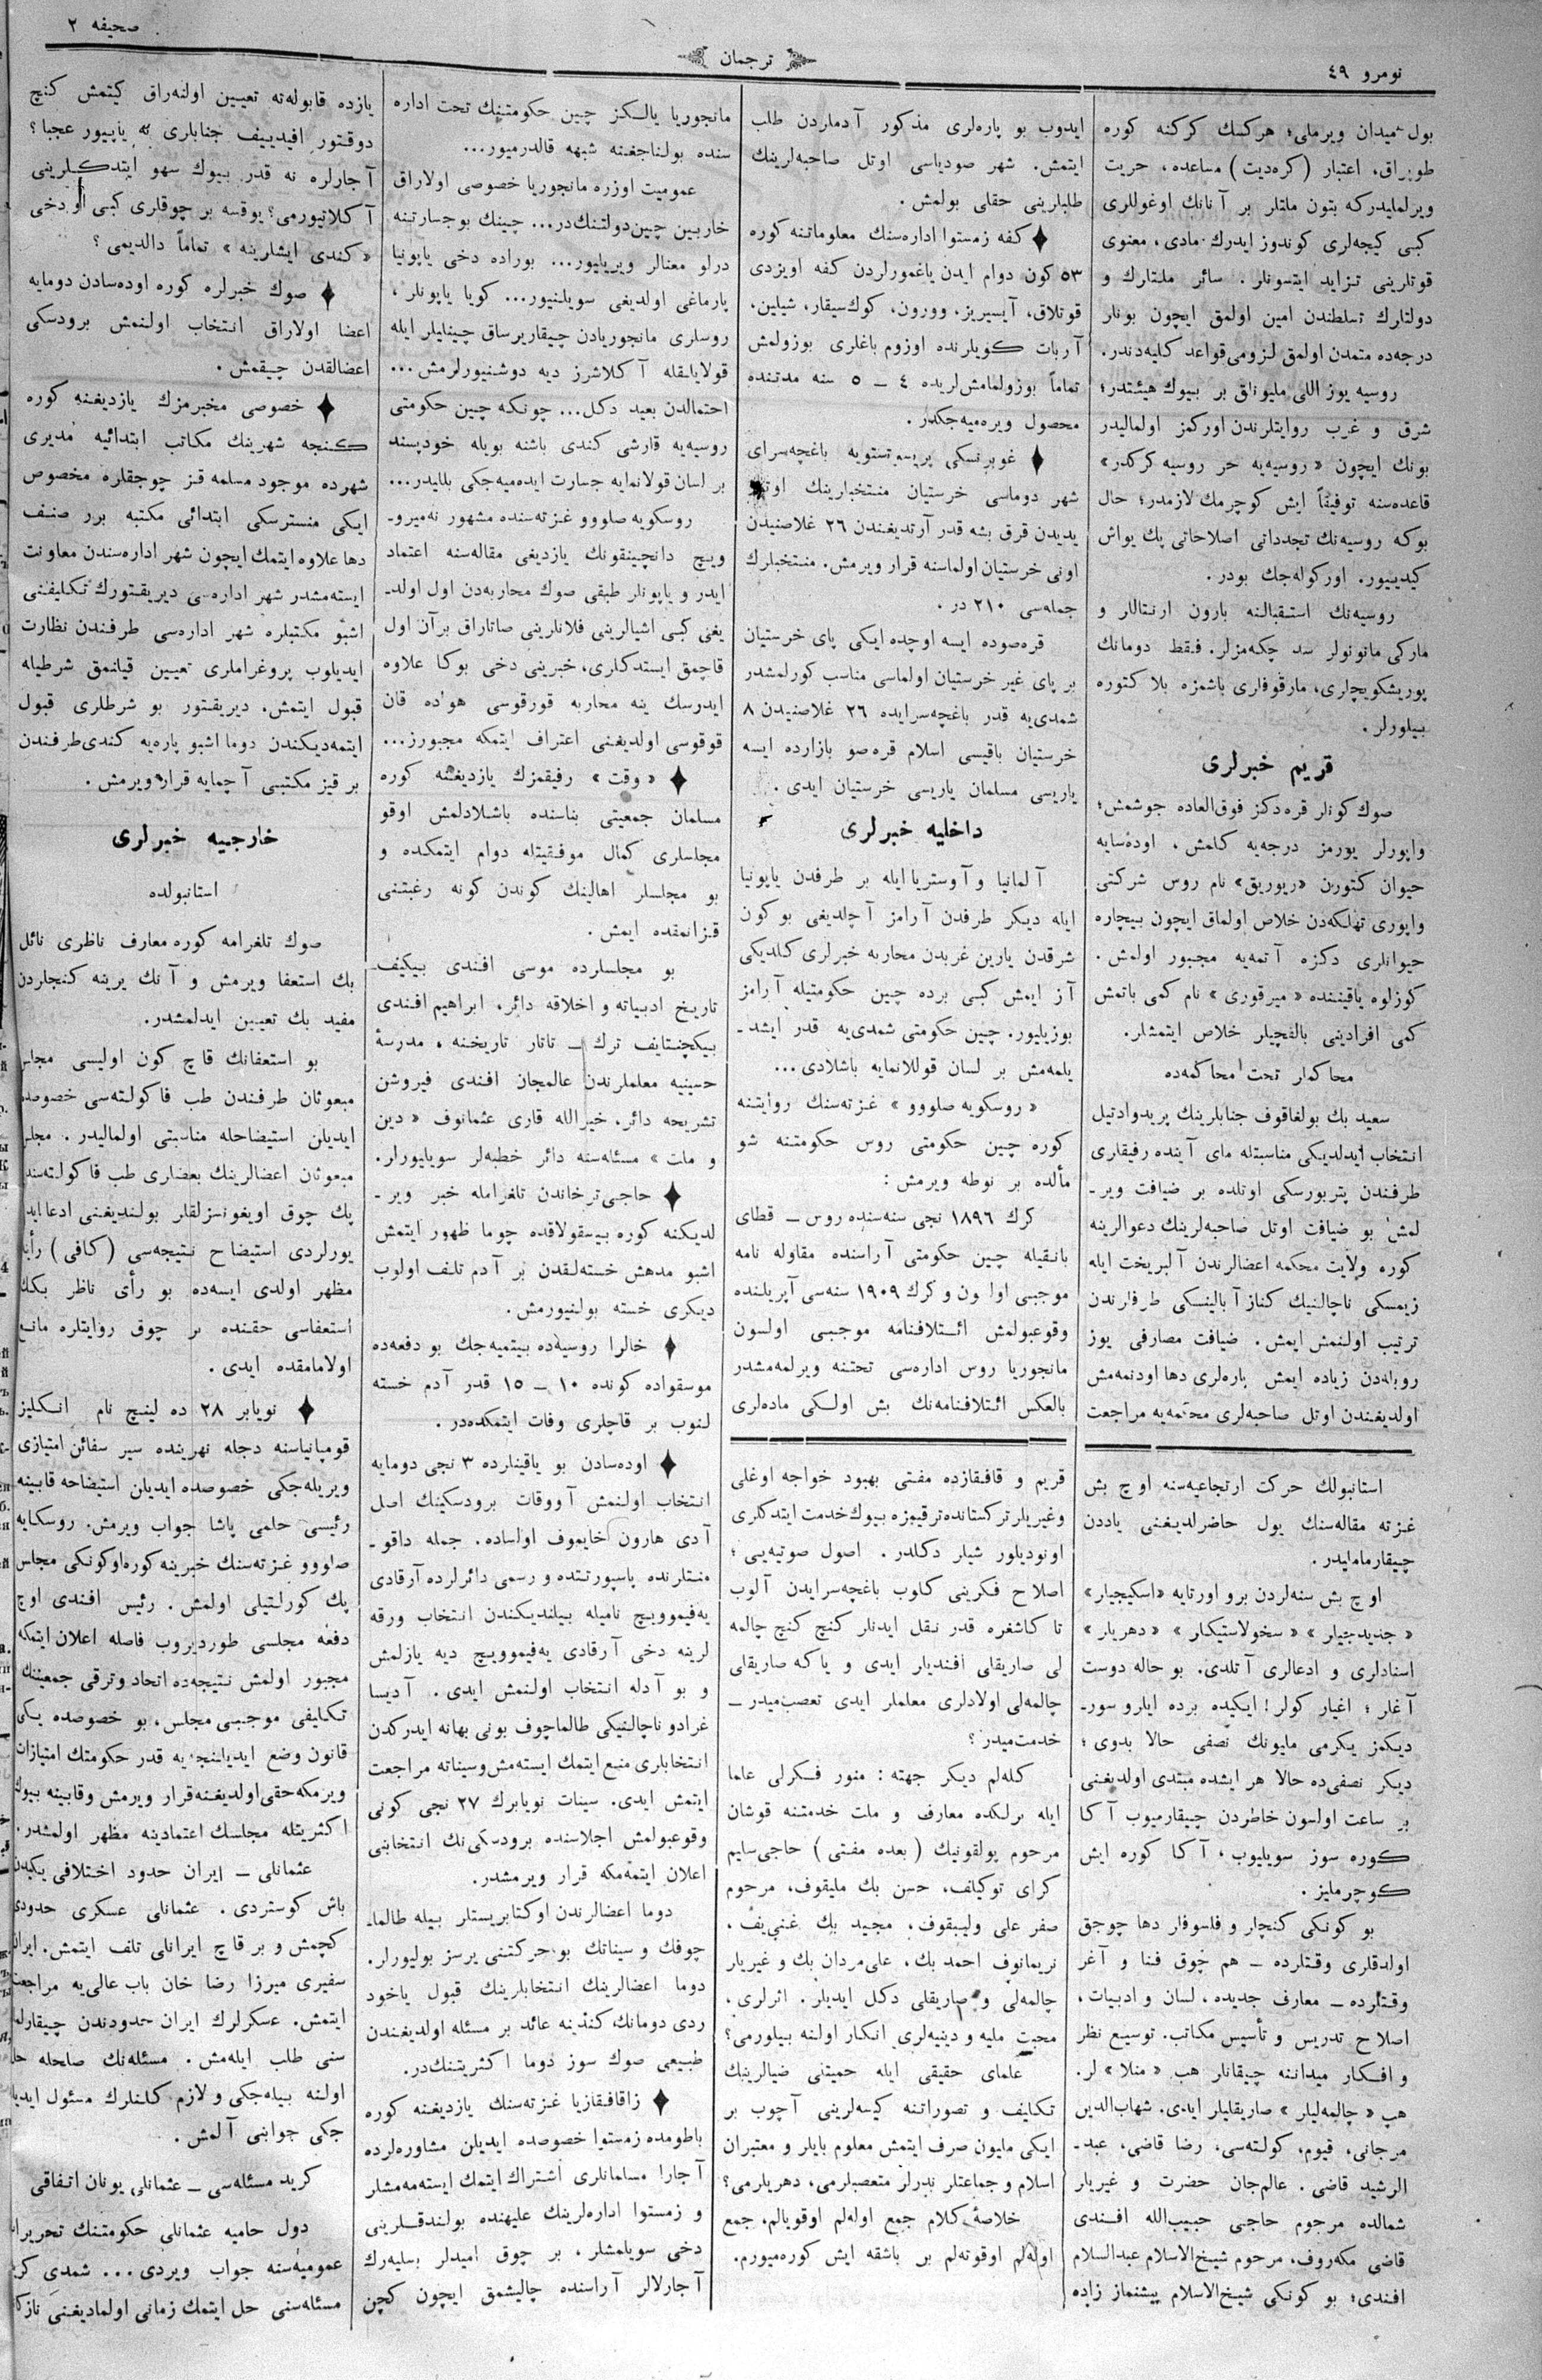 نومرو ٤٩
ترجمان
صحیفه ٢
بول میدان ویرملی؛ هرکسك کرکنه کوره
طوپراق، اعتبار (کره‌دیت) مساعده، حریت
ویرلملیدرکه بتون ملتلر بر آنانك اوغوللری
کبی کیجه‌لری کوندوز ایدرك مادی، معنوی
قوتلرینی تزاید ایتسونلر. سائر ملتلرك و
دولتلرك تسلطندن امین اولمق ایچون بونلر
درجه‌ده متمدن اولمق لزومی قواعد کلیه‌دندر.
روسیه یوز اللی ملیونلق بر بیوك هیئتدر؛
شرق و غرب روایتلرندن اورکمز اولمالیدر
بونك ایچون «روسیه‌یه حر روسیه کرکدر»
قاعده‌سنه توفیقاً ایش کوچرمك لازمدر؛ حال
بوکه روسیه‌نك تجدداتی اصلاحاتی پك یواش
کیدییور. اورکوله‌جك بودر.
روسیه‌نك استقبالنه بارون ارنتاللر و
مارکی مانونولر سد چکه‌مزلر. فقط دومانك
پوریشکویچلری، مارقوفلری باشمزه بلا کتوره
بیلورلر.
قریم خبرلری
صوك کونلر قره‌دکز فوق‌العاده جوشمش؛
واپورلر یورمز درجه‌یه کلمش، اوده‌سایه
حیوان کتورن «ریوریق» نام روس شرکتی
واپوری تهلکه‌دن خلاص اولماق ایچون بیچاره
حیوانلری دکزه آتمه‌یه مجبور اولمش.
کوزلوه یاقیننده «میرقوری» نام کمی باتمش
کمی افرادینی بالقچیلر خلاص ایتمشلر.
محاکملر تحت محاکمه‌ده
سعید بك بولغاقوف جنابلرینك پریدوادتیل
انتخاب ایدلدیکی مناسبتله مای آینده رفیقلری
طرفندن پتربورسکی اوتلده بر ضیافت ویر-
لمش بو ضیافت اوتل صاحبه‌لرینك دعوالرینه
کوره ولایت محکمه اعضالرندن آلبریخت ایله
زیمسکی ناچالنیك کناز آبالینسکی طرفلرندن
ترتیب اولنمش ایمش. ضیافت مصارفی یوز
روبله‌دن زیاده ایمش پاره‌لری دها اودنمه‌مش
اولدیغندن اوتل صاحبه‌لری محکمه‌یه مراجعت
ایدوب بو پاره‌لری مذکور آدملردن طلب
ایتمش. شهر صودیاسی اوتل صاحبه‌لرینك
طلبلرینی حقلی بولمش.
کفه زمستوا اداره‌سنك معلوماتنه کوره
٥٣ کون دوام ایدن یاغمورلردن کفه اویزدی
قوتلاق، آیسیریز، وورون، کوك‌سیقار، شیلین،
آربات کویلرنده اوزوم باغلری بوزولمش
تماماً بوزولمامشلریده ٤ ــ ٥ سنه مدتنده
محصول ویره‌میه‌جکدر.
غوبرنسکی پریسوتستویه باغچه‌سرای
شهر دوماسی خرستیان منتخبلرینك
یدیدن قرق بشه قدر آرتدیغندن ٢٦ غلاصنیدن
اونی خرستیان اولماسنه قرار ویرمش. منتخبلرك
جمله‌سی ٢١٠ در.
قره‌صوده ایسه اوچده ایکی پای خرستیان
بر پای غیر خرستیان اولماسی مناسب کورلمشدر
شمدی‌یه قدر باغچه‌سرایده ٢٦ غلاصنیدن ٨
خرستیان باقیسی اسلام قره‌صو بازارده ایسه
یاریسی مسلمان یاریسی خرستیان ایدی.
داخلیه خبرلری
آلمانیا و آوستریا ایله بر طرفدن یاپونیا
ایله دیکر طرفدن آرامز آچلدیغی بو کون
شرقدن یارین غربدن محاربه خبرلری کلدیکی
آز ایمش کبی برده چین حکومتیله آرامز
بوزیلیور. چین حکومتی شمدی‌یه قدر ایشد-
یلمه‌مش بر لسان قوللانمایه باشلادی...
«روسکویه صلووو» غزته‌سنك روایتنه
کوره چین حکومتی روس حکومتنه شو
مألده بر نوطه ویرمش:
کرك ١٨٩٦ نجی سنه‌سنده روس ــ قطای
بانقیله چین حکومتی آراسنده مقاوله نامه
موجبی اولسون و کرك ١٩٠٩ سنه‌سی آپریلنده
وقوعبولمش ائتلافنامه موجبی اولسون
مانجوریا روس اداره‌سی تحتنه ویرلمه‌مشدر
بالعکس ائتلافنامه‌نك بش اولکی ماده‌لری
مانجوریا یالکز چین حکومتینك تحت اداره
سنده بولناجغنه شبهه قالدرمیور...
عمومیت اوزره مانجوریا خصوصی اولاراق
خاربین چین‌دولتنك‌در... چینك بوجسارتنه
درلو معنالر ویریلیور... بوراده دخی یاپونیا
پارماغی اولدیغی سویلنیور... کویا یاپونلر،
روسلری مانجوریادن چیقاریرساق چینلیلر ایله
قولایلقله آکلاشرز دیه دوشنیورلرمش...
احتمالدن بعید دکل... چونکه چین حکومتی
روسیه‌یه قارشی کندی باشنه بویله خودپسند
بر لسان قولانمایه جسارت ایده‌میه‌جکی بللیدر...
روسکویه صلووو غزته‌سنده مشهور نه‌میرو-
ویچ دانچینقونك یازدیغی مقاله‌سنه اعتماد
ایدر و یاپونلر طبقی صوك محاربه‌دن اول اولد-
یغی کبی اشیالرینی فلانلرینی صاتاراق برآن اول
قاچمق ایستدکلری، خبرینی دخی بوکا علاوه
ایدرسك ینه محاربه قورقوسی هواده قان
قوقوسی اولدیغنی اعتراف ایتمکه مجبورز...
«وقت» رفیقمزك یازدیغنه کوره
مسلمان جمعیتی بناسنده باشلادلمش اوقو
مجلسلری کمال موفقیتله دوام ایتمکده و
بو مجلسلر اهالینك کوندن کونه رغبتنی
قزانمقده ایمش.
بو مجلسلرده موسی افندی بیکیف-
تاریخ ادبیاته و اخلاقه دائر، ابراهیم افندی
بیکچنتایف ترك ــ تاتار تاریخنه، مدرسهٔ
حسینیه معلملرندن عالمجان افندی فیروشن
تشریحه دائر، خیرالله قاری عثمانوف «دین
و ملت» مسئله‌سنه دائر خطبه‌لر سویلیورلر.
حاجی‌ترخاندن تلغرامله خبر ویر-
لدیکنه کوره بیسقولاقده چوما ظهور ایتمش
اشبو مدهش خسته‌لقدن بر آدم تلف اولوب
دیکری خسته بولنیورمش.
خالرا روسیه‌ده بیتمیه‌جك بو دفعه‌ده
موسقواده کونده ١٠ ــ ١٥ قدر آدم خسته
لنوب بر قاچلری وفات ایتمکده‌در.
اوده‌سادن بو یاقینلرده ٣ نجی دومایه
انتخاب اولنمش آووقات برودسکینك اصل
آدی هارون خایموف اولساده. جمله داقو-
منتلرنده پاسپورتنده و رسمی دائرلرده آرقادی
یه‌فیموویچ نامیله بیلندیکندن انتخاب ورقه
لرینه دخی آرقادی یه‌فیموویچ دیه یازلمش
و بو آدله انتخاب اولنمش ایدی. آدیسا
غرادوناچالنیکی طالماچوف بونی بهانه ایدرکدن
انتخابلری منع ایتمك ایسته‌مش وسیناته مراجعت
ایتمش ایدی. سینات نویابرك ٢٧ نجی کونی
وقوعبولمش اجلاسنده برودسکی‌نك انتخابنی
اعلان ایتمه‌مکه قرار ویرمشدر.
دوما اعضالرندن اوکتابریستلر بیله طالما-
چوفك و سیناتك بو حرکتنی یرسز بولیورلر.
دوما اعضالرینك انتخابلرینك قبول یاخود
ردی دومانك، کندینه عائد بر مسئله اولدیغندن
طبیعی صوك سوز دوما اکثریتنك‌در.
زاقافقازیا غزته‌سنك یازدیغنه کوره
باطومده زمستوا خصوصده ایدیلن مشاوره‌لرده
آجارا مسلمانلری اشتراك ایتمك ایسته‌مه‌مشلر
و زمستوا اداره‌لرینك علیهنده بولندقلرینی
دخی سویلمشلر، بر چوق امیدلر بسلیه‌رك
آجارلالر آراسنده چالیشمق ایچون کچن
یازده قابوله‌ته تعیین اولنه‌راق کیتمش کنج
دوقتور افیدییف جنابلری نه یاپیور عجبا؟
آجارلره نه قدر بیوك سهو ایتدکلرینی
آکلاتیورمی؟ یوقسه بر چوقلری کبی او دخی
«کندی ایشلرینه» تماماً دالدیمی؟
صوك خبرلره کوره اوده‌سادن دومایه
اعضا اولاراق انتخاب اولنمش برودسکی
اعضالقدن چیقمش.
خصوصی مخبرمزك یازدیغنه کوره
کنجه شهرینك مکاتب ابتدائیه مدیری
شهرده موجود مسلمه قز چوجقلره مخصوص
ایکی منسترسکی ابتدائی مکتبه برر صنف
دها علاوه ایتمك ایچون شهر اداره‌سندن معاونت
ایسته‌مشدر شهر اداره‌سی دیریقتورك تکلیفنی
اشبو مکتبلره شهر اداره‌سی طرفندن نظارت
ایدیلوب پروغراملری تعیین قیلنمق شرطیله
قبول ایتمش. دیریقتور بو شرطلری قبول
ایتمه‌دیکندن دوما اشبو پاره‌یه کندی‌طرفندن
بر قیز مکتبی آچمایه قرار ویرمش.
خارجیه خبرلری
استانبولده
صوك تلغرامه کوره معارف ناظری نائل
بك استعفا ویرمش و آنك یرینه کنجلردن
مفید بك تعیین ایدلمشدر.
بو استعفانك قاچ کون اولیسی مجلس
مبعوثان طرفندن طب فاکولته‌سی خصوصده
ایدیلن استیضاحله مناسبتی اولمالیدر. مجلس
مبعوثان اعضالرینك بعضلری طب فاکولته‌سنده
پك چوق اویغونسزلقلر بولندیغنی ادعا اید
یورلردی استیضاح نتیجه‌سی (کافی) رأینه
مظهر اولدی ایسه‌ده بو رأی ناظر بکك
استعفاسی حقنده بر چوق روایتلره مانع
اولامامقده ایدی.
نویابر ٢٨ ده لینچ نام انکلیز
قومپانیاسنه دجله نهرینده سیر سفائن امتیازی
ویریله‌جکی خصوصده ایدیلن استیضاحه قابینه
رئیسی حلمی پاشا جواب ویرمش. روسکایه
صلووو غزته‌سنك خبرینه کوره اوکونکی مجلس
پك کورلتیلی اولمش. رئیس افندی اوچ
دفعه مجلسی طوردیروب فاصله اعلان ایتمکه
مجبور اولمش نتیجه‌ده اتحاد وترقی جمعیتنك
تکلیفی موجبی مجلس، بو خصوصده یکی
قانون وضع ایدیلنجه‌یه قدر حکومتك امتیازات
ویرمکه حقی اولدیغنه قرار ویرمش وقابینه بیوك
اکثریتله مجلسك اعتمادینه مظهر اولمشدر.
عثمانلی ــ ایران حدود اختلافی یکیدن
باش کوستردی. عثمانلی عسکری حدودی
کچمش و بر قاچ ایرانلی تلف ایتمش. ایران
سفیری میرزا رضا خان باب عالی‌یه مراجعت
ایتمش. عسکرلرك ایران حدودندن چیقارلما
سنی طلب ایله‌مش. مسئله‌نك صلحله حل
اولنه بیله‌جکی و لازم کلنلرك مسئول ایدیله
جکی جوابنی آلمش.
کرید مسئله‌سی ــ عثمانلی یونان اتفاقی
دول حامیه عثمانلی حکومتنك تحریرات
عمومیه‌سنه جواب ویردی... شمدی کرید
مسئله‌سنی حل ایتمك زمانی اولمادیغنی نازکا
استانبولك حرکت ارتجاعیه‌سنه اوچ بش
غزته مقاله‌سنك یول حاضرلدیغنی یاددن
چیقارمامالیدر.
اوچ بش سنه‌لردن برو اورتایه «اسکیجیلر»
«جدیدجیلر» «سخولاستیکلر» «دهریلر»
اسنادلری و ادعالری آتلدی. بو حاله دوست
آغلر؛ اغیار کولر! ایکیده برده ایلرو سور-
دیکمز یکرمی ملیونك نصفی حالا بدوی؛
دیکر نصفی‌ده حالا هر ایشده مبتدی اولدیغنی
بر ساعت اولسون خاطردن چیقارمیوب آکا
کوره سوز سویلیوب، آکا کوره ایش
کوچرملیز.
بو کونکی کنجلر و فلسوفلر دها چوجق
اولدقلری وقتلرده ــ هم چوق فنا و آغر
وقتلرده ــ معارف جدیده، لسان و ادبیات،
اصلاح تدریس و تأسیس مکاتب. توسیع نظر
و افکار میداننه چیقانلر هب «منلا» لر.
هپ «چالمه‌لیلر» صاریقلیلر ایدی. شهاب‌الدین
مرجانی، قیوم، کولته‌سی، رضا قاضی، عبد-
الرشید قاضی. عالم‌جان حضرت و غیریلر
شمالده مرحوم حاجی حبیب‌الله افندی
قاضی مکه‌روف، مرحوم شیخ‌الاسلام عبدالسلام
افندی؛ بو کونکی شیخ‌الاسلام پیشنماز زاده
قریم و قافقازده مفتی بهبود خواجه اوغلی
وغیریلر ترکستانده ترقیمزه بیوك خدمت ایتدکلری
اونودیلور شیلر دکلدر. اصول صوتیه‌یی؛
اصلاح فکرینی کلوب باغچه‌سرایدن آلوب
تا کاشغره قدر نقل ایدنلر کنچ کنچ چالمه
لی صاریقلی افندیلر ایدی و یا که صاریقلی
چالمه‌لی اولادلری معلملر ایدی تعصب‌میدر ــ
خدمت‌میدر؟
کله‌لم دیکر جهته: منور فکرلی علما
ایله برلکده معارف و ملت خدمتنه قوشان
مرحوم پولقونیك (بعده مفتی) حاجی‌سلیم
کرای توکیلف، حسن بك ملیقوف، مرحوم
صفر علی ولیبقوف، مجید بك غنی‌یف،
نریمانوف احمد بك، علی‌مردان بك و غیریلر
چالمه‌لی و صاریقلی دکل ایدیلر. اثرلری،
محبت ملیه و دینیه‌لری انکار اولنه بیلورمی؟
علمای حقیقی ایله حمیتلی ضیالرینك
تکلیف و تصوراتنه کیسه‌لرینی آچوب بر
ایکی ملیون صرف ایتمش معلوم بایلر و معتبران
اسلام و جماعتلر ندرلر متعصبلرمی، دهریلرمی؟
خلاصهٔ کلام جمع اوله‌لم اوقویالم، جمع
اوله‌لم اوقوته‌لم بر باشقه ایش کوره‌میورم.